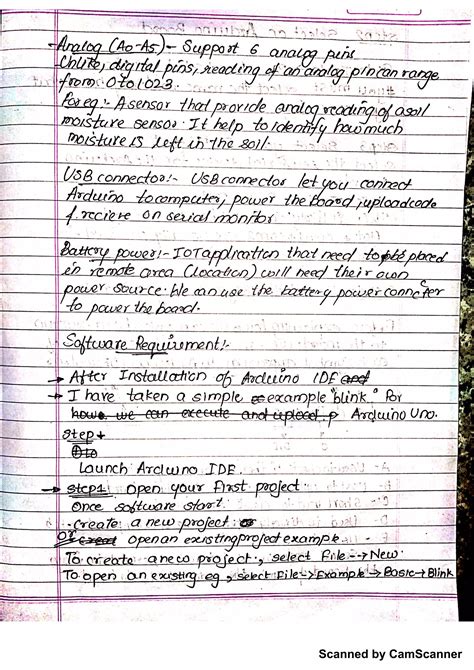 - Analog (A0-A5) - Support 6 analog pins
Unlike, digital pins, reading of an analog pin can range
from 0 to 1023.
for eg:- A sensor that provide analog reading of a soil
moisture sensor. It help to identify how much
moisture is left in the soil.
USB connector:- USB connector let you connect
Arduino to computer, power the board, upload code
& recieve on serial monitor
Battery power:- IOT application that need to be placed
in remote area (location) will need their own
power source. We can use the battery power connecter
to power the board.
Software Requirement:-
→ After Installation of Arduino IDE and
→ I have taken a simple example "blink." for
how we can execute and upload p Arduino Uno.
Step
Launch Arduino IDE.
→ Step1 open your first project.
Once software start.
- create a new project
or open an existing project example.
To create a new project, select File --> New.
To open an existing eg, select File -> Example -> Basic -> Blink
Scanned by CamScanner